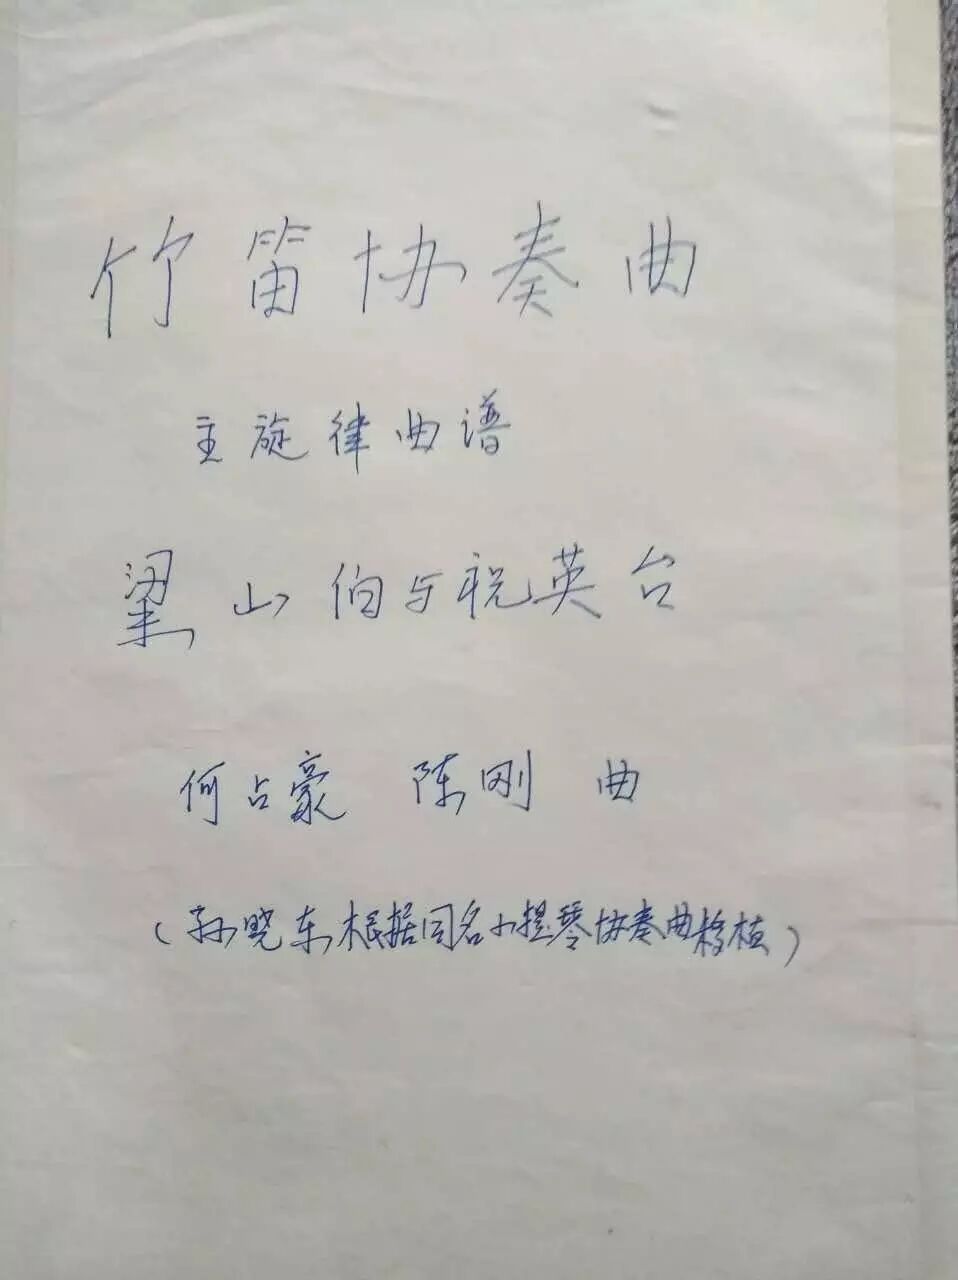 竹笛协奏曲
主旋律曲谱
梁山伯与祝英台
何占豪 陈刚 曲
(孙晓东根据同名小提琴协奏曲移植)